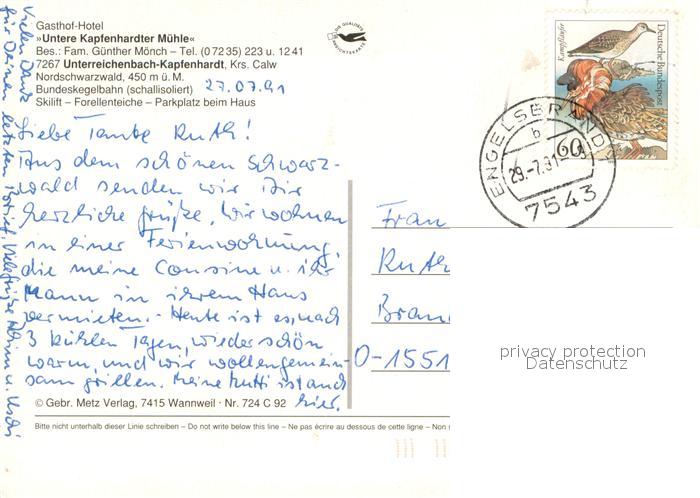 Gasthof-Hotel
»Untere Kapfenhardter Mühle«
Bes.: Fam. Günther Mönch – Tel. (0 72 35) 223 u. 12 41
7267 Unterreichenbach-Kapfenhardt, Krs. Calw
Nordschwarzwald, 450 m ü. M.
Bundeskegelbahn (schallisoliert) 27.07.91
Skilift – Forellenteiche – Parkplatz beim Haus
Liebe Tante Ruth!
Aus dem schönen Schwarz-
wald senden wir Dir
herzliche Grüße. Wir wohnen
in einer Ferienwohnung,
die meine Cousine u. ihr
Mann in ihrem Haus
vermieten. - Heute ist es, nach
3 kühlen Tagen, wieder schön
warm, und wir wollen gemein-
sam grillen. Meine Mutti ist auch
hier.
Vielen Dank
für Deinen letzten Brief. Viele Grüße
u. Uschi
© Gebr. Metz Verlag, 7415 Wannweil · Nr. 724 C 92
Bitte nicht unterhalb dieser Linie schreiben – Do not write below this line – Ne pas écrire au dessous de cette ligne – Non
Kampfläufer
Deutsche Bundespost
60
ENGELSBRAND
b
29.-7.91
7543
Frau
Ruth
Bran
O-1551
privacy protection
Datenschutz